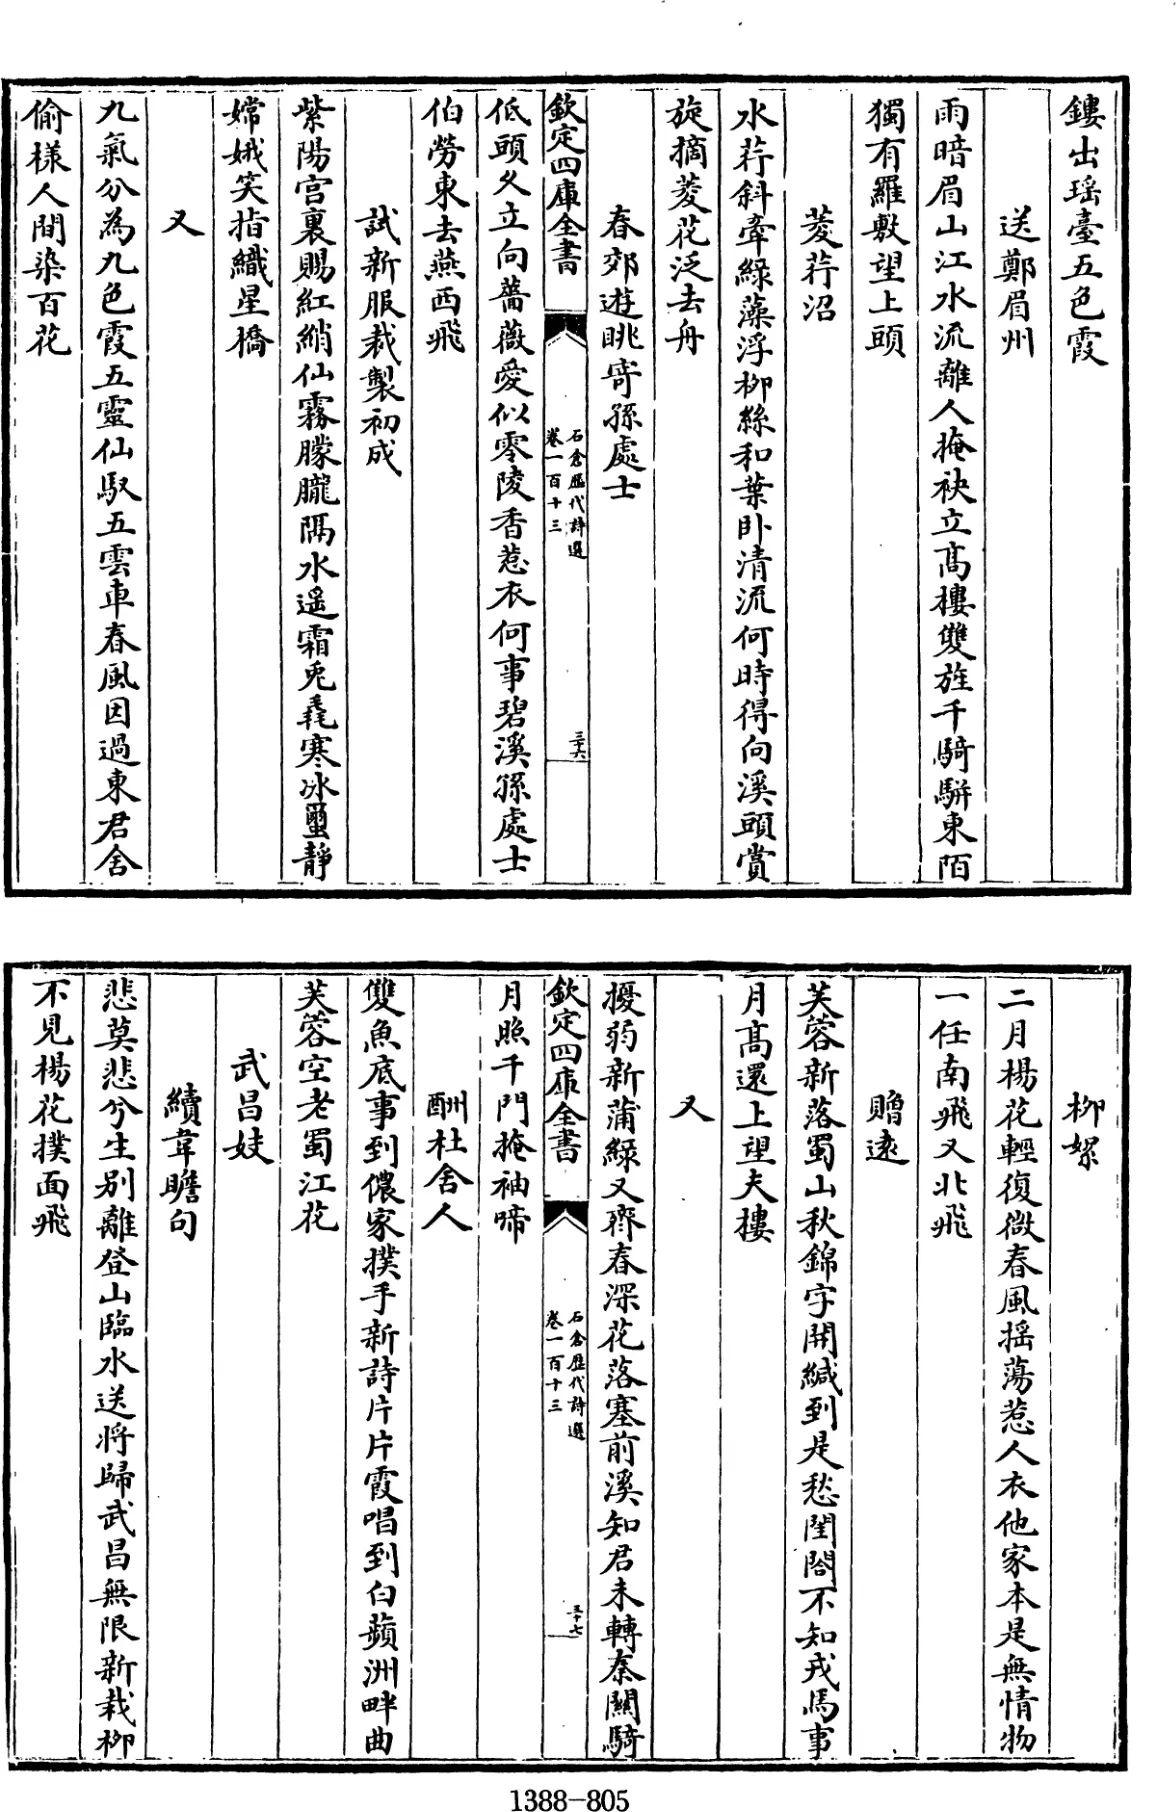 鏤出瑶臺五色霞
送鄭眉州
雨暗眉山江水流離人掩袂立髙樓雙旌千騎駢東陌
獨有羅敷望上頭
菱荇沼
水荇斜牽綠藻浮柳絲和葉卧清流何時得向溪頭賞
旋摘菱花泛去舟
春郊遊眺寄孫處士
欽定四庫全書
石倉歷代詩選
卷一百十三
三十六
低頭久立向薔薇愛似零陵香惹衣何事碧溪孫處士
伯勞東去燕西飛
試新服裁製初成
紫陽宫裏賜紅綃仙霧朦朧隔水遥霜兎毳寒冰蠒靜
嫦娥笑指織星橋
又
九氣分為九色霞五靈仙馭五雲車春風因過東君舍
偷樣人間染百花
柳絮
二月楊花輕復微春風摇蕩惹人衣他家本是無情物
一任南飛又北飛
贈逺
芙蓉新落蜀山秋錦字開緘到是愁閨閤不知戎馬事
月髙還上望夫樓
又
擾弱新蒲綠又齊春深花落塞前溪知君未轉秦關騎
欽定四庫全書
石倉歷代詩選
卷一百十三
三十七
月照千門掩袖啼
酬杜舍人
雙魚底事到儂家撲手新詩片片霞唱到白蘋洲畔曲
芙蓉空老蜀江花
武昌妓
續韋瞻句
悲莫悲兮生别離登山臨水送將歸武昌無限新栽柳
不見楊花撲面飛
1388-805